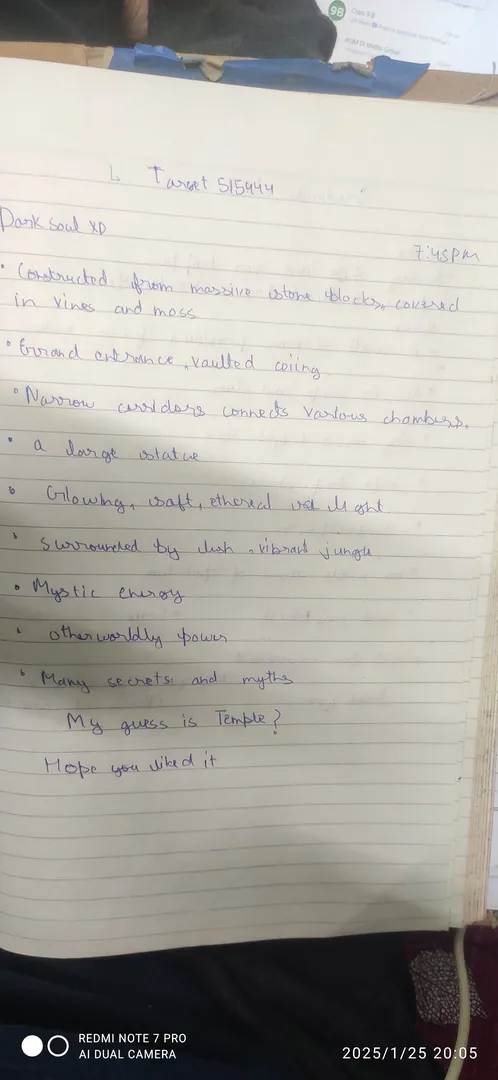 9B
Class 9 B
AGM Di Maths Group
Target 515444
Dark Soul XD
7:45PM
• Constructed from massive stone blocks, covered
in vines and moss
• Grand entrance, vaulted
• Narrow corridors connects various chambers.
• a large statue
• Glowing, soft, ethereal
• surrounded by lush, vibrant jungle
• Mystic energy
• otherworldly power
• Many secrets and myths
My guess is Temple?
Hope you liked it
REDMI NOTE 7 PRO
AI DUAL CAMERA
2025/1/25 20:05